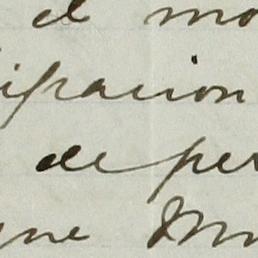 el mo
ipacion
de per
gne Mu